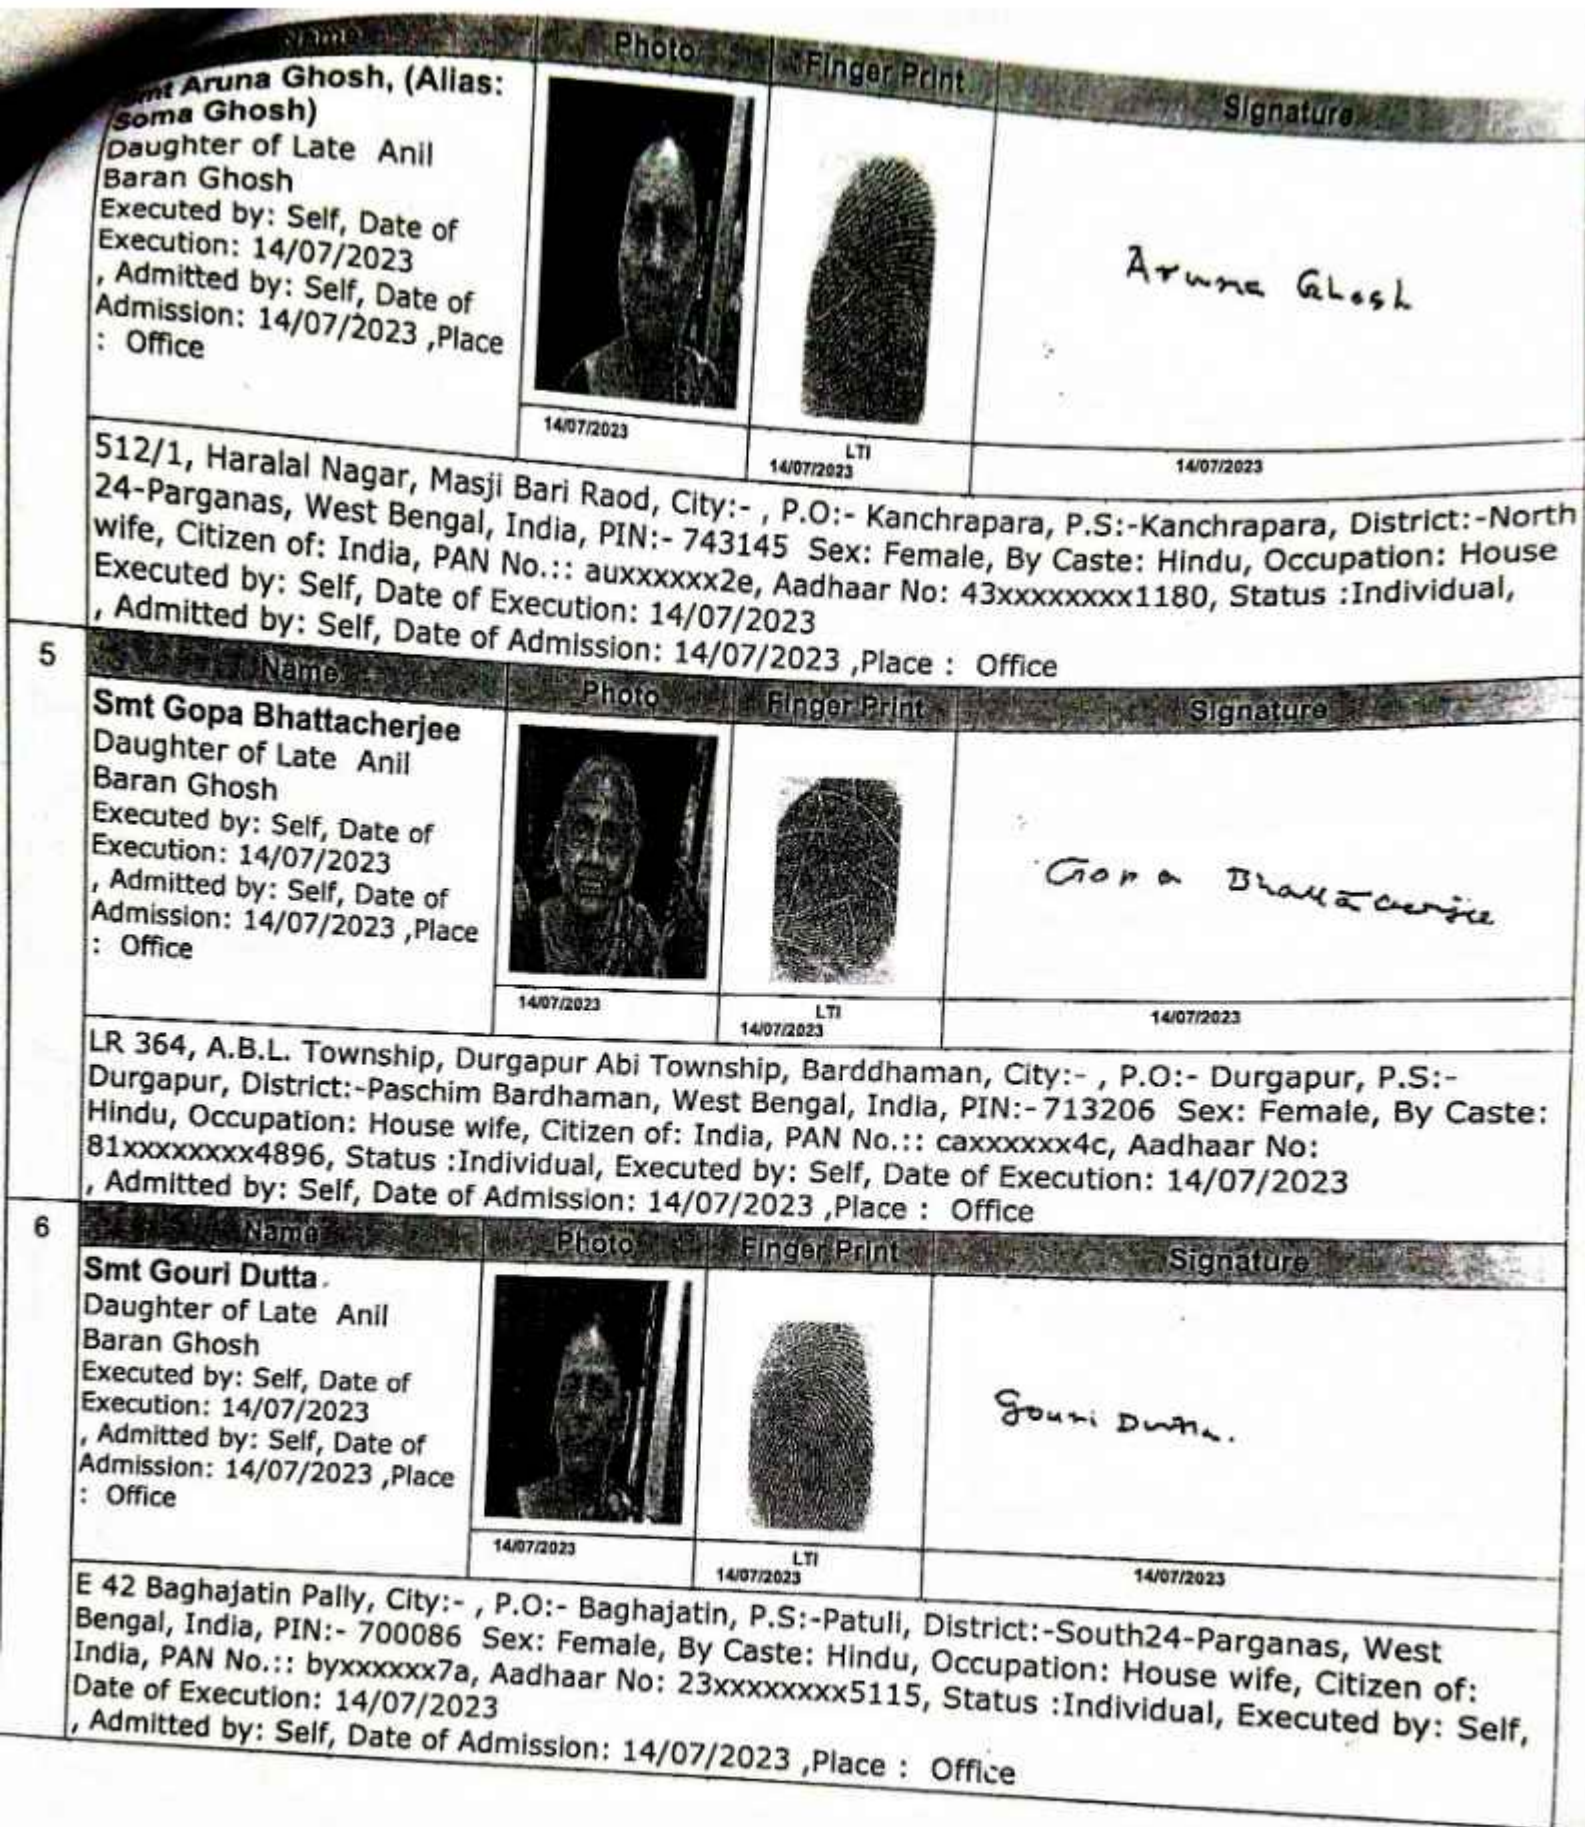 Name Photo Finger Print Signature
Smt Aruna Ghosh, (Alias:
Soma Ghosh)
Daughter of Late Anil
Baran Ghosh
Executed by: Self, Date of
Execution: 14/07/2023
, Admitted by: Self, Date of
Admission: 14/07/2023 ,Place
: Office
Aruna Ghosh
14/07/2023
LTI
14/07/2023
14/07/2023
512/1, Haralal Nagar, Masji Bari Raod, City:- , P.O:- Kanchrapara, P.S:-Kanchrapara, District:-North
24-Parganas, West Bengal, India, PIN:- 743145 Sex: Female, By Caste: Hindu, Occupation: House
wife, Citizen of: India, PAN No.:: auxxxxxx2e, Aadhaar No: 43xxxxxxxx1180, Status :Individual,
Executed by: Self, Date of Execution: 14/07/2023
, Admitted by: Self, Date of Admission: 14/07/2023 ,Place : Office
5
Name Photo Finger Print Signature
Smt Gopa Bhattacherjee
Daughter of Late Anil
Baran Ghosh
Executed by: Self, Date of
Execution: 14/07/2023
, Admitted by: Self, Date of
Admission: 14/07/2023 ,Place
: Office
Gopa Bhattacherjee
14/07/2023
LTI
14/07/2023
14/07/2023
LR 364, A.B.L. Township, Durgapur Abl Township, Barddhaman, City:- , P.O:- Durgapur, P.S:-
Durgapur, District:-Paschim Bardhaman, West Bengal, India, PIN:- 713206 Sex: Female, By Caste:
Hindu, Occupation: House wife, Citizen of: India, PAN No.:: caxxxxxx4c, Aadhaar No:
81xxxxxxxx4896, Status :Individual, Executed by: Self, Date of Execution: 14/07/2023
, Admitted by: Self, Date of Admission: 14/07/2023 ,Place : Office
6
Name Photo Finger Print Signature
Smt Gouri Dutta
Daughter of Late Anil
Baran Ghosh
Executed by: Self, Date of
Execution: 14/07/2023
, Admitted by: Self, Date of
Admission: 14/07/2023 ,Place
: Office
Gouri Dutta.
14/07/2023
LTI
14/07/2023
14/07/2023
E 42 Baghajatin Pally, City:- , P.O:- Baghajatin, P.S:-Patuli, District:-South24-Parganas, West
Bengal, India, PIN:- 700086 Sex: Female, By Caste: Hindu, Occupation: House wife, Citizen of:
India, PAN No.:: byxxxxxx7a, Aadhaar No: 23xxxxxxxx5115, Status :Individual, Executed by: Self,
Date of Execution: 14/07/2023
, Admitted by: Self, Date of Admission: 14/07/2023 ,Place : Office